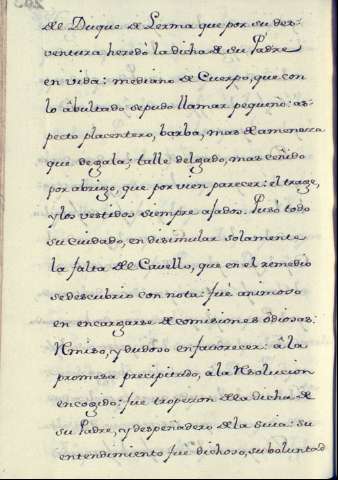 del Duque de Lerma que por su des-
ventura heredò la dicha de su Padre
en vida: mediano de Cuerpo, que con
lo âbultado sepudo llamar pequeño: as-
pecto placentero, barba, mas de amenaza
que de gala; talle delgado, mas ceñido
por abrigo, que por vien parecer: el trage,
y los vestidos siempre ajados. Pusò todo
su cuidado, en disimular solamente
la falta del Cavello, que en el remedio
se descubrio con nota: fuè animoso
en encargarse de comisiones ôdiosas:
Remiso, y dudoso en favorecer: â la
promesa precipitado, â la Resolucion
encogido: fue tropezon de la dicha de
su Padre, y despeñadero de la suia: su
entendimiento fue dichoso, su boluntad